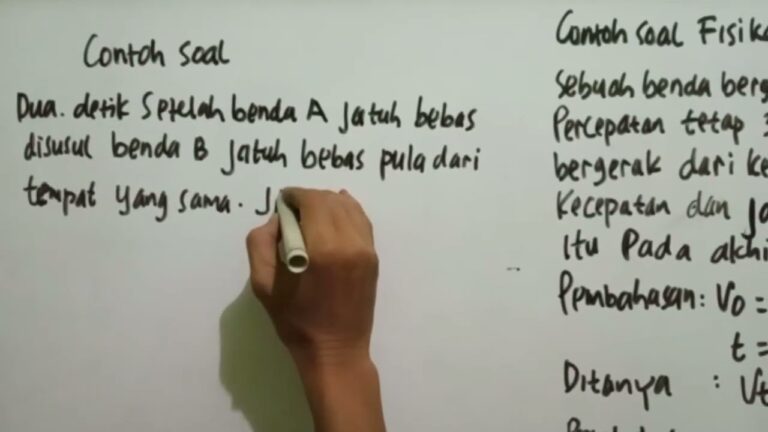 Contoh soal
Dua. detik Setelah benda A Jatuh bebas
disusul benda B Jatuh bebas pula dari
tempat yang sama. J
Contoh soal Fisik
Sebuah benda berg
Percepatan tetap 3
bergerak dari ke
Kecepatan dan Ja
Itu Pada akhi
Pembahasan: Vo =
t =
Ditanya : Vt